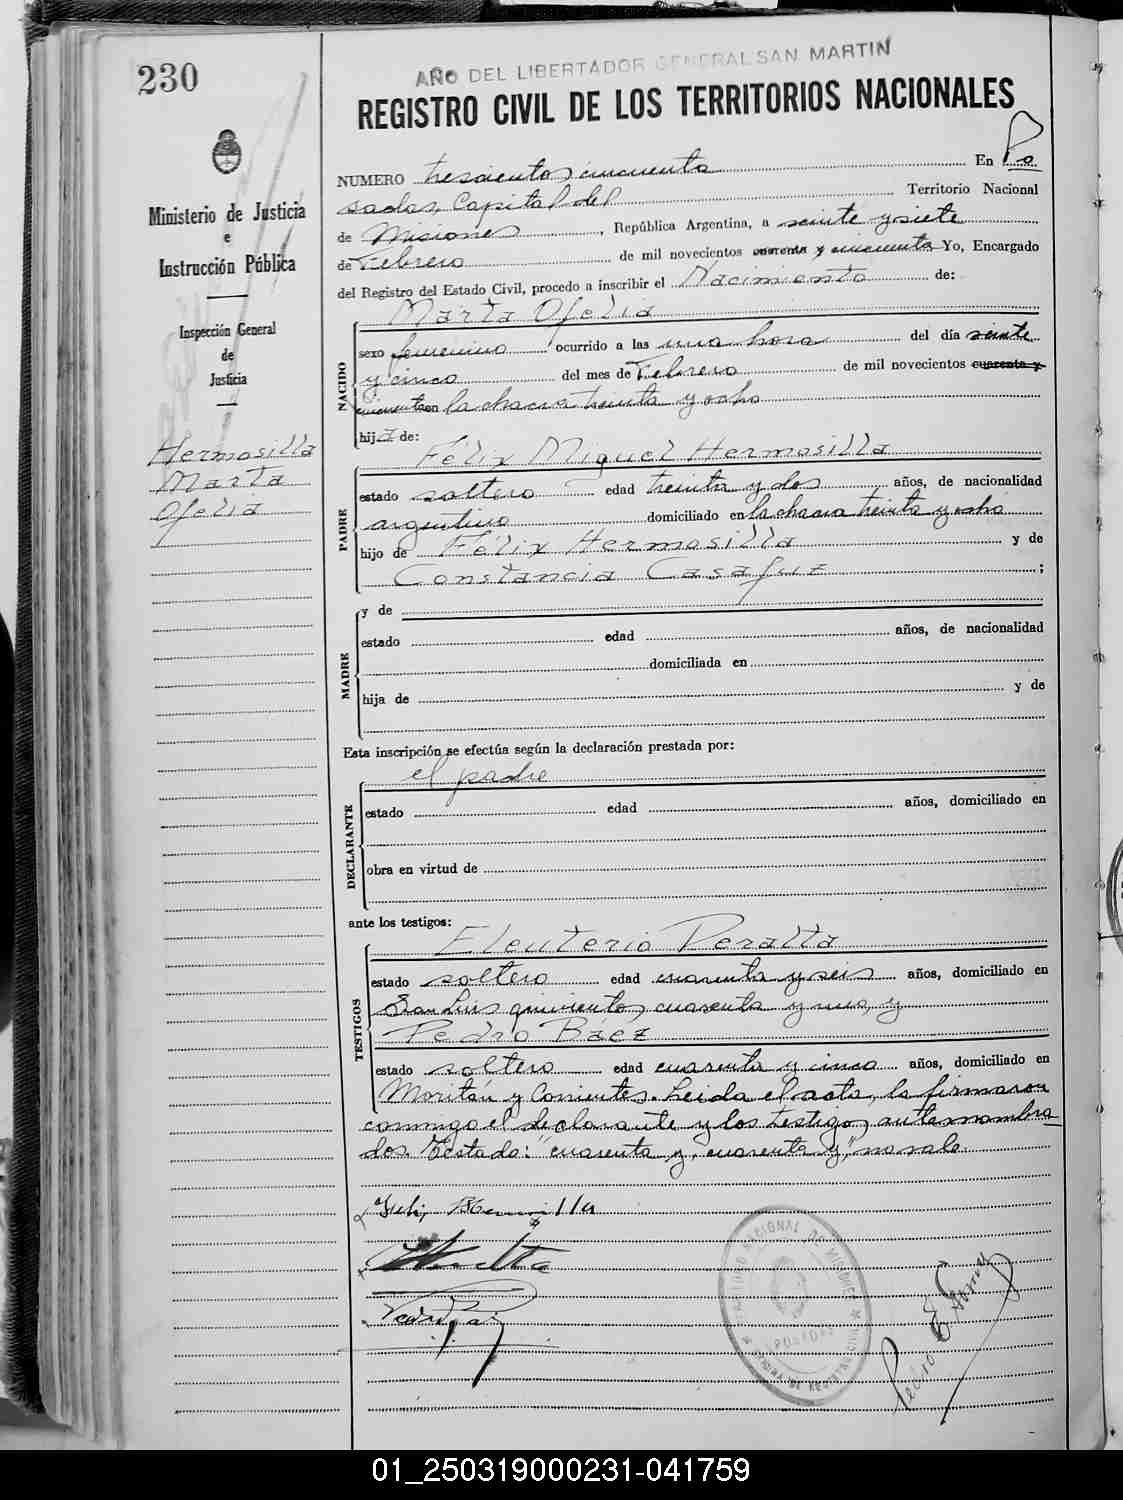 230
AÑO DEL LIBERTADOR GENERAL SAN MARTIN
REGISTRO CIVIL DE LOS TERRITORIOS NACIONALES
Ministerio de Justicia
e
Instrucción Pública
Inspección General
de
Justicia
Hermosilla
Marta
Ofelia
NUMERO trescientos cincuenta En Po
sadas, Capital del Territorio Nacional
de Misiones, República Argentina, a veinte y siete
de Febrero de mil novecientos cuarenta y cincuenta Yo, Encargado
del Registro del Estado Civil, procedo a inscribir el Nacimiento de:
NACIDO
Marta Ofelia
sexo femenino ocurrido a las una hora del día veinte
y cinco del mes de Febrero de mil novecientos cuarenta y
cincuenta en la chacra treinta y ocho
hija de:
PADRE
Félix Miguel Hermosilla
estado soltero edad treinta y dos años, de nacionalidad
argentino domiciliado en la chacra treinta y ocho
hijo de Félix Hermosilla y de
Constancia Casafuz ;
MADRE
y de
estado edad años, de nacionalidad
domiciliada en
hija de y de
Esta inscripción se efectúa según la declaración prestada por:
el padre
DECLARANTE
estado edad años, domiciliado en
obra en virtud de
ante los testigos:
TESTIGOS
Eleuterio Peralta
estado soltero edad cuarenta y seis años, domiciliado en
San Luis quinientos cuarenta y uno, y
Pedro Baez
estado soltero edad cuarenta y cinco años, domiciliado en
Moritán y Corrientes. Leida el acta, la firmaron
conmigo el declarante y los testigos antes nombra
dos. Testado: "cuarenta y, cuarenta y", no vale.
Pedro E.
01_250319000231-041759